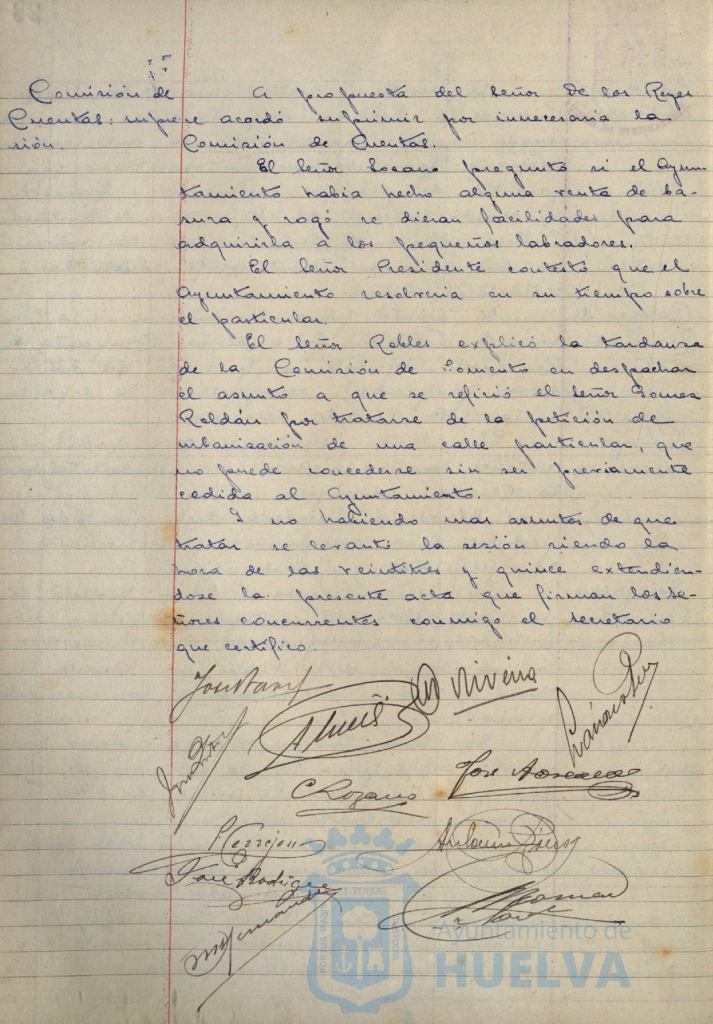 Comisión de
Cuentas: supre
sión.
A propuesta del Señor De los Reyes
se acordó suprimir por innecesaria la
Comisión de Cuentas.
El Señor Lozano preguntó si el Ayun-
tamiento había hecho alguna venta de ba-
sura y rogó se dieran facilidades para
adquirirla a los pequeños labradores.
El Señor Presidente contestó que el
Ayuntamiento resolvería en su tiempo sobre
el particular.
El Señor Robles explicó la tardanza
de la Comisión de Fomento en despachar
el asunto a que se refirió el Señor Gomez
Roldán por tratarse de la petición de
urbanización de una calle particular, que
no puede concederse sin ser previamente
cedida al Ayuntamiento.
Y no habiendo mas asuntos de que
tratar se levantó la sesión siendo la
hora de las veintitres y quince extendien-
dose la presente acta que firman los Se-
ñores concurrentes conmigo el Secretario
que certifico.
Viveira
C Lozano
José
P Cerrejon
Antonio
José Rodrigue
Hernandez
Ayuntamiento de
HUELVA